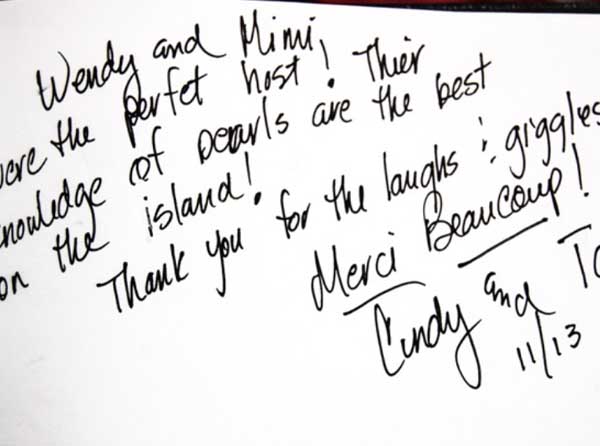 Wendy and Mimi,
were the perfet host! Thier
knowledge of pearls are the best
on the island!
Thank you for the laughs & giggles
Merci Beaucoup!
Cindy and
11/13